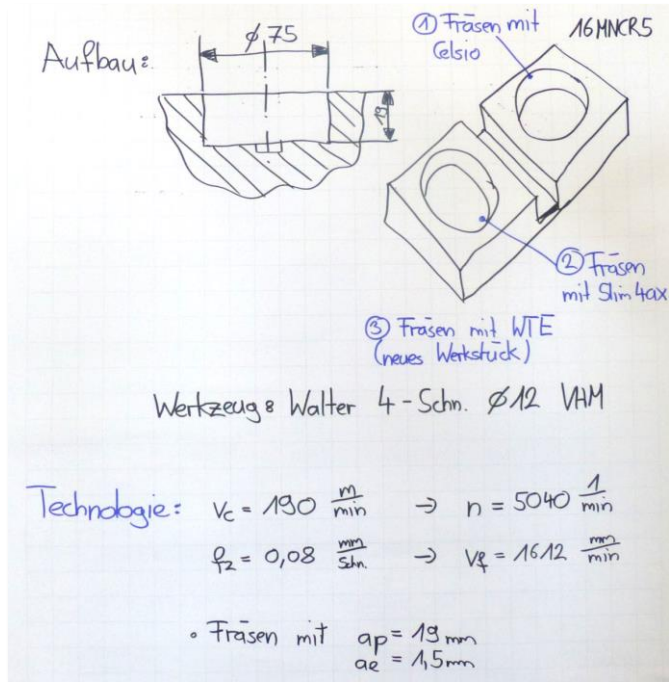 Aufbau:
ϕ75
19
① Fräsen mit
Celsio
16MNCR5
② Fräsen
mit Slim 4ax
③ Fräsen mit WTE
(neues Werkstück)
Werkzeug: Walter 4-Schn. Ø12 VHM
Technologie: Vc = 190 m/min → n = 5040 1/min
fz = 0,08 mm/Schn. → Vf = 1612 mm/min
• Fräsen mit ap = 19 mm
ae = 1,5 mm